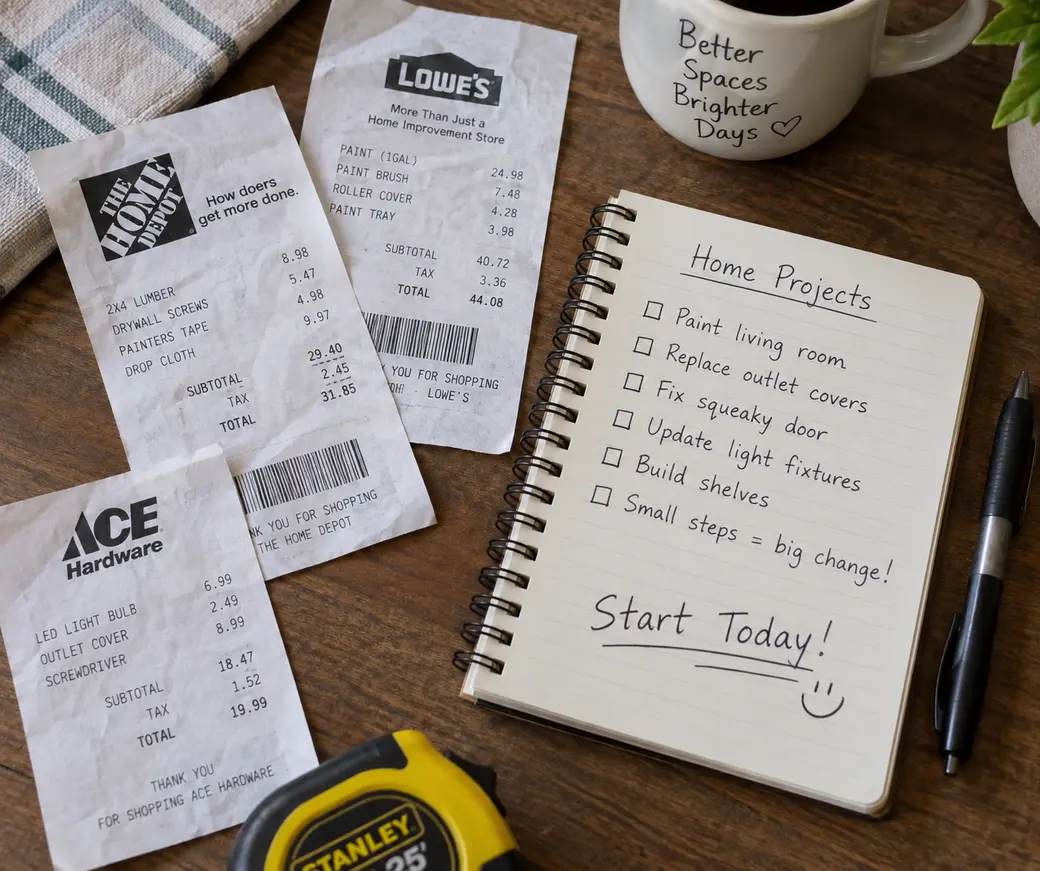 THE
HOME
DEPOT
How doers
get more done.
2X4 LUMBER 8.98
DRYWALL SCREWS 5.47
PAINTERS TAPE 4.98
DROP CLOTH 9.97
SUBTOTAL 29.40
TAX 2.45
TOTAL 31.85
NK YOU FOR SHOPPING
THE HOME DEPOT
LOWE'S
More Than Just a
Home Improvement Store
PAINT (1GAL) 24.98
PAINT BRUSH 7.48
ROLLER COVER 4.28
PAINT TRAY 3.98
SUBTOTAL 40.72
TAX 3.36
TOTAL 44.08
YOU FOR SHOPPING
- LOWE'S
ACE
Hardware
LED LIGHT BULB 6.99
OUTLET COVER 2.49
SCREWDRIVER 8.99
SUBTOTAL 18.47
TAX 1.52
TOTAL 19.99
THANK YOU
FOR SHOPPING ACE HARDWARE
STANLEY
25'
Better
Spaces
Brighter
Days ♡
Home Projects
☐ Paint living room
☐ Replace outlet covers
☐ Fix squeaky door
☐ Update light fixtures
☐ Build shelves
☐ Small steps = big change!
Start Today!